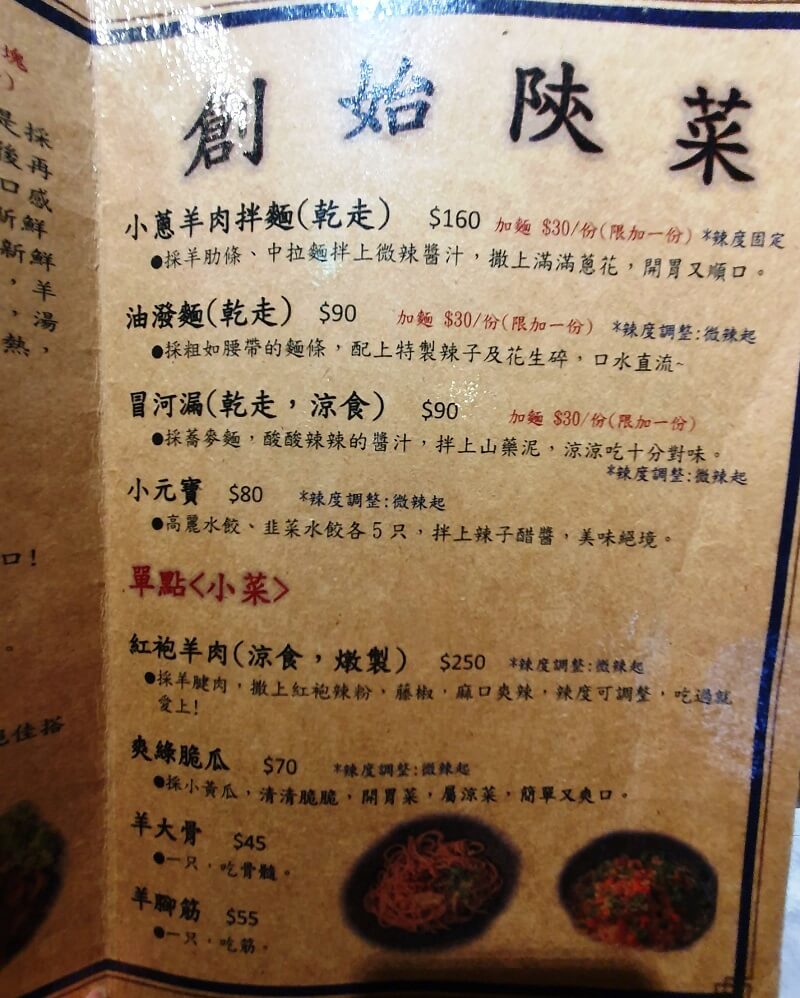 創始陝菜
小蔥羊肉拌麵(乾走) $160 加麵 $30/份(限加一份) *辣度固定
●採羊肋條、中拉麵拌上微辣醬汁，撒上滿滿蔥花，開胃又順口。
油潑麵(乾走) $90 加麵 $30/份(限加一份) *辣度調整:微辣起
●採粗如腰帶的麵條，配上特製辣子及花生碎，口水直流~
冒河漏(乾走，涼食) $90 加麵 $30/份(限加一份)
●採蕎麥麵，酸酸辣辣的醬汁，拌上山藥泥，涼涼吃十分對味。
*辣度調整:微辣起
小元寶 $80 *辣度調整:微辣起
●高麗水餃、韭菜水餃各5只，拌上辣子醋醬，美味絕境。
單點<小菜>
紅袍羊肉(涼食，燉製) $250 *辣度調整:微辣起
●採羊腱肉，撒上紅袍辣粉，藤椒，麻口爽辣，辣度可調整，吃過就
愛上!
爽綠脆瓜 $70 *辣度調整:微辣起
●採小黃瓜，清清脆脆，開胃菜，屬涼菜，簡單又爽口。
羊大骨 $45
●一只，吃骨髓。
羊腳筋 $55
●一只，吃筋。
塊
是採
後再
口感
所鮮
新鮮
，羊
，湯
熱，
口!
。
絕佳搭